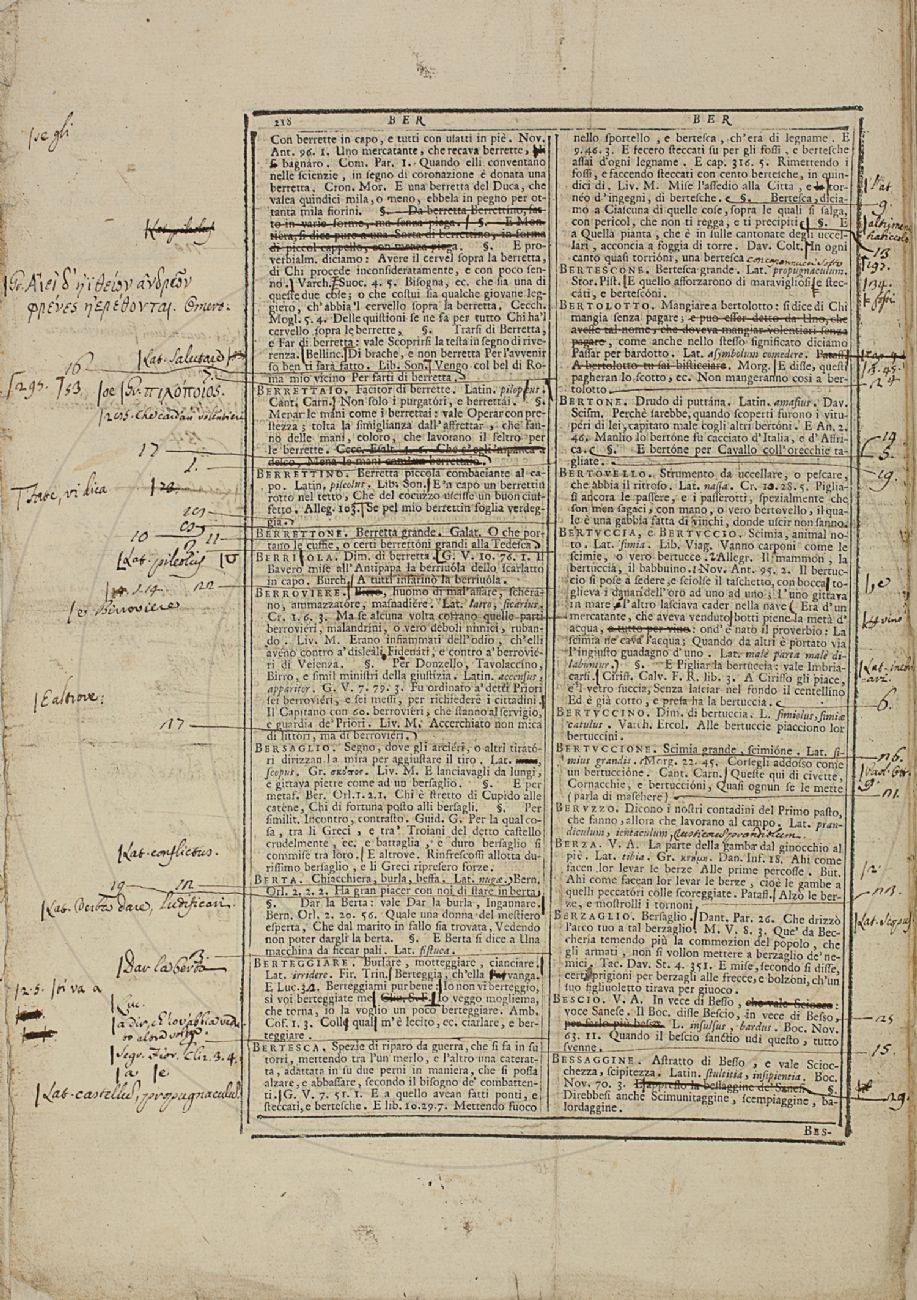 218 BER BER
Con berrette in capo, e tutti con usatti in piè. Nov.
Ant. 96. 1. Uno mercatante, che recava berrette,
bagnaro. Com. Par. 1. Quando elli conventano
nelle scienzie, in segno di coronazione è donata una
berretta. Cron. Mor. E una berretta del Duca, che
valea quindici mila, o meno, ebbela in pegno per ot-
tanta mila fiorini. §. Da berretta Berrettino, fat-
to in varie forme, ma senza piega. §. E Mon-
tiera, si dice pure a una Sorta di berrettino, in forma
di piccol cappello, con mezza piega. §. E pro-
verbialm. diciamo: Avere il cervel sopra la berretta,
di Chi procede inconsideratamente, e con poco sen-
no. Varch. Suoc. 4. 5. Bisogna, ec. che sia una di
queste due cose; o che costui sia qualche giovane leg-
giero, ch'abbia 'l cervel sopra la berretta. Cecch.
Mogl. 5. 4. Delle quistioni se ne fa per tutto Chi ha 'l
cervello sopra le berrette. §. Trarsi di Berretta,
e Far di berretta: vale Scoprirsi la testa in segno di rive-
renza. Bellinc. Di brache, e non berretta Per l'avvenir
so ben ti sarà fatto. Lib. Son. Vengo col bel di Ro-
ma mio vicino Per farti di berretta.
BERRETTAIO. Facitor di berrette. Latin. pileopus.
Cant. Carn. Non solo i purgatori, e berrettai. §.
Menar le mani come i berrettai: vale Operar con pre-
stezza; tolta la simiglianza dall'affrettar, che fan-
no delle mani, coloro, che lavorano il feltro per
le berrette. Cecc. Esalt. 4. 6. Che s'egl'inpania a
desco, Mena le mani com'un berrettaio.
BERRETTINO. Berretta piccola combaciante al ca-
po. Latin. pileolus. Lib. Son. E 'n capo un berrettin
rotto nel tetto, Che del cocuzzo uscisse un buon ciuf-
fetto. Alleg. 103. Se pel mio berrettin foglia verdeg-
gia.
BERRETTONE. Berretta grande. Galat. O che por-
tano le cuffie, o certi berrettoni grandi alla Tedesca.
BERRIUOLA. Dim. di berretta. G. V. 10. 76. 1. Il
Bavero mise all'Antipapa la berriuola dello scarlatto
in capo. Burch. A tutti infarinò la berriuola.
BERROVIERE. huomo di mal'affare, schera-
no, ammazzatore, masnadiere. Lat. latro, sicarius.
Cr. 1. 6. 3. Ma se alcuna volta corrano quelle parti
berrovieri, malandrini, o vero deboli nimici, ruban-
do. Liv. M. Erano infiammati dell'odio, ch'elli
aveno contro a' disleali Fidenati, e contro a' berrovie-
ri di Veienza. §. Per Donzello, Tavolaccino,
Birro, e simil ministri della giustizia. Latin. accensus,
apparitor. G. V. 7. 79. 3. Fu ordinato a' detti Priori
sei berrovieri, e sei messi, per richiedere i cittadini.
Il Capitano con 60. berrovieri, che stanno al servigio,
e guardia de' Priori. Liv. M. Accerchiato non mica
di littori, ma di berrovieri.
BERSAGLIO. Segno, dove gli arcieri, o altri tirato-
ri dirizzan la mira per aggiustare il tiro. Lat.
scopus. Gr. σκόπος. Liv. M. E lanciavagli da lungi,
e gittava pietre come ad un bersaglio. §. E per
metaf. Ber. Orl. 1. 2. 1. Chi è stretto di Cupido alle
catene, Chi di fortuna posto alli bersagli. §. Per
similit. Incontro, contrasto. Guid. G. Per la qual co-
sa, tra li Greci, e tra' Troiani del detto castello
crudelmente, ec. e battaglia, e duro bersaglio si
commise tra loro. E altrove. Rinfrescossi allotta du-
rissimo bersaglio, e li Greci ripresero forze.
BERTA. Chiacchiera, burla, beffa. Lat. nugæ. Bern.
Orl. 2. 2. 2. Ha gran piacer con noi di stare in berta.
§. Dar la Berta: vale Dar la burla, Ingannare.
Bern. Orl. 2. 20. 56. Quale una donna del mestiero
esperta, Che dal marito in fallo sia trovata, Vedendo
non poter dargli la berta. §. E Berta si dice a Una
macchina da ficcar pali. Lat. fistuca.
BERTEGGIARE. Burlare, motteggiare, cianciare.
Lat. irridere. Fir. Trin. Berteggia, ch'ella vanga.
E Luc. 3. 2. Berteggiami pur bene: Io non vi berteggio,
sì voi berteggiate me. Io veggo mogliema,
che torna, io la voglio un poco berteggiare. Amb.
Cof. 1. 3. Colle qual m'è lecito, ec. ciarlare, e ber-
teggiare.
BERTESCA. Spezie di riparo da guerra, che si fa in su
torri, mettendo tra l'un merlo, e l'altro una caterat-
ta, adattata in su due perni in maniera, che si possa
alzare, e abbassare, secondo il bisogno de' combatten-
ti. G. V. 7. 51. 1. E a quello avean fatti ponti, e
steccati, e bertesche. E lib. 10. 29. 7. Mettendo fuoco
nello sportello, e bertesca, ch'era di legname. E
9. 46. 3. E fecero steccati su per gli fossi, e bertesche
assai d'ogni legname. E cap. 316. 5. Rimettendo i
fossi, e faccendo steccati con cento bertesche, in quin-
dici dì. Liv. M. Mise l'assedio alla Città, e tor-
neò d'ingegni, di bertesche. §. Bertesca, dicia-
mo a Ciascuna di quelle cose, sopra le quali si salga,
con pericol, che non ti regga, e ti precipiti. §. E
a Quella pianta, che è in sulle cantonate degli uccel-
lari, acconcia a foggia di torre. Dav. Colt. In ogni
canto quasi torrioni, una bertesca
BERTESCONE. Bertesca grande. Lat. propugnaculum.
Stor. Pist. E quello afforzarono di maravigliosi stec-
cati, e bertesconi.
BERTOLOTTO. Mangiare a bertolotto: si dice di Chi
mangia senza pagare; e può esser detto da Uno, che
avesse tal nome, che doveva mangiar volentieri senza
pagare, come anche nello stesso significato diciamo
Passar per bardotto. Lat. asymbolum comedere. Pataff.
A bertolotto tu sai bisticciare. Morg. E disse, questi
pagheran lo scotto, ec. Non mangeranno così a ber-
tolotto.
BERTONE. Drudo di puttana. Latin. amasius. Dav.
Scism. Perchè sarebbe, quando scoperti furono i vitu-
péri di lei, capitato male cogli altri bertoni. E An. 2.
46. Manlio lo bertone fu cacciato d'Italia, e d'Affri-
ca. §. E bertone per Cavallo coll'orecchie ta-
gliate.
BERTOVELLO. Strumento da uccellare, o pescare,
che abbia il ritroso. Lat. nassa. Cr. 10. 28. 5. Piglia-
si ancora le passere, e i passerotti, spezialmente che
son men sagaci, con mano, o vero bertovello, il qua-
lo è una gabbia fatta di vinchi, donde uscir non sanno.
BERTUCCIA, e BERTUCCIO. Scimia, animal no-
to. Lat. simia. Lib. Viag. Vanno carponi come le
scimie, o vero bertucce. Allegr. Il mammon, la
bertuccia, il babbuino. Nov. Ant. 95. 2. Il bertuc-
cio si pose a sedere, e sciolse il taschetto, con bocca to-
glieva i danari dell'oro ad uno ad uno; l'uno gittava
in mare l'altro lasciava cader nella nave. Era d'un
mercatante, che aveva venduto botti piene la metà d'
acqua, e tutto per vino: ond'è nato il proverbio: La
scimia ne cava l'acqua: Quando da altri è portato via
l'ingiusto guadagno d'uno. Lat. male parta male di-
labuntur. §. E Pigliar la bertuccia: vale Imbria-
carsi. Ciriff. Calv. F. R. lib. 3. A Ciriffo gli piace,
e 'l vetro succia, Senza lasciar nel fondo il centellino
Ed è già cotto, e presa ha la bertuccia.
BERTUCCINO. Dim. di bertuccia. L. simiolus, simiæ
catulus. Varch. Ercol. Alle bertuccie piacciono lor
bertuccini.
BERTUCCIONE. Scimia grande, scimióne. Lat. si-
mius grandis. Morg. 22. 45. Corsegli addosso come
un bertuccione. Cant. Carn. Queste qui di civette,
Cornacchie, e bertuccioni, Quasi ognun se le mette
(parla di maschere)
BERUZZO. Dicono i nostri contadini del Primo pasto,
che fanno, allora che lavorano al campo. Lat. pran-
diculum, ientaculum,
BERZA. V. A. La parte della gamba dal ginocchio al
piè. Lat. tibia. Gr. κνήμη. Dan. Inf. 18. Ahi come
facen lor levar le berze Alle prime percosse. But.
Ahi come facean lor levar le berze, cioè le gambe a
quelli peccatori colle scoreggiate. Pataff. Alzò le ber-
ze, e mostrolli i tornoni.
BERZAGLIO. Bersaglio. Dant. Par. 26. Che drizzò
l'arco tuo a tal berzaglio. M. V. 8. 3. Que' da Bec-
cheria temendo più la commozion del popolo, che
gli armati, non si vollon mettere a berzaglio de' ne-
mici. Tac. Dav. St. 4. 351. E mise, secondo si disse,
certi prigioni per berzagli alle frecce, e bolzoni, ch'un
suo figliuoletto tirava per giuoco.
BESCIO. V. A. In vece di Besso, che vale Sciocco:
voce Sanese. Il Boc. disse Bescio, in vece di Besso,
per farlo più besso. L. insulsus, bardus. Boc. Nov.
63. 11. Quando il bescio sanctio udì questo, tutto
svenne.
BESSAGGINE. Astratto di Besso, e vale Scioc-
chezza, scipitezza. Latin. stultitia, insipientia. Boc.
Nov. 70. 3. E appresso la bessaggine de' Sanesi. §.
Direbbesi anche Scimunitaggine, scempiaggine, ba-
lordaggine.
BES-
se gli
Gr. Αἰεὶ δ' ἠϊθέων ἀνδρῶν
φρένες ἠερέθονται. Omero.
Lat. Salutare
16
295. 53.
Gr. πιλοποιός.
17
10
11
Lat. pileolus
22
e Berroviere
E altrove:
17
Lat. conflictus.
19
Lat. Berta dare, ludificari.
Dar la berta
25. si va a
Luc.
Segr. Fior. Cli. 2. 3. 4.
Lat. castellus, propugnaculum
Lat.
9.
13
297.
134.
19
5.
19.
e
6.
n6.
12
Lat. scopus
25
15.
29.